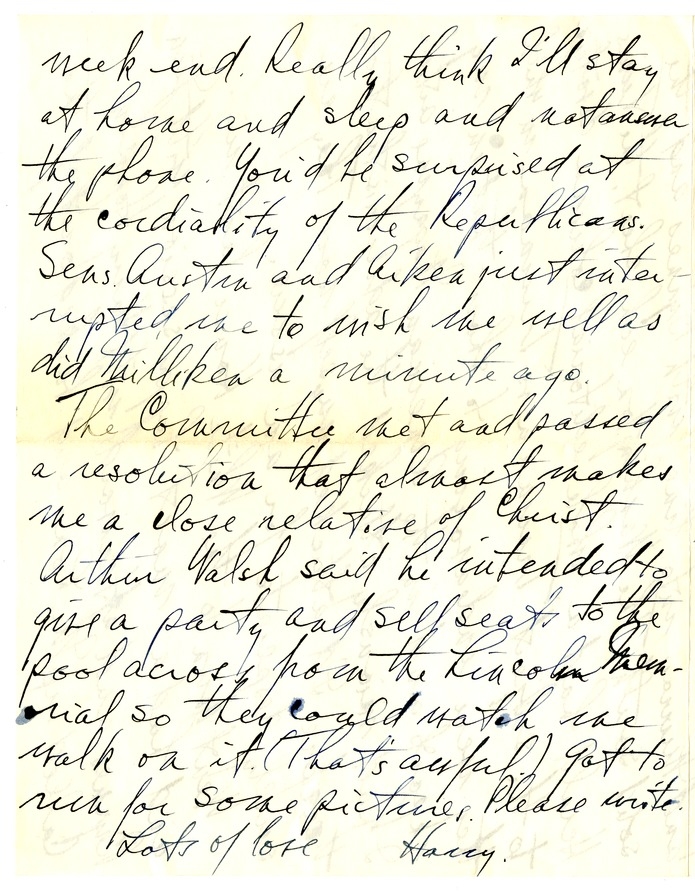 week end. Really think I'll stay
at home and sleep and not answer
the phone. You'd be surprised at
the cordiality of the Republicans.
Sens. Austin and Aiken just inter-
rupted me to wish me well as
did Milliken a minute ago.
The Committee met and passed
a resolution that almost makes
me a close relative of Christ.
Arthur Walsh said he intended to
give a party and sell seats to the
pool across from the Lincoln Mem-
orial so they could watch me
walk on it. (That's awful.) Got to
run for some pictures. Please write.
Lots of love Harry.